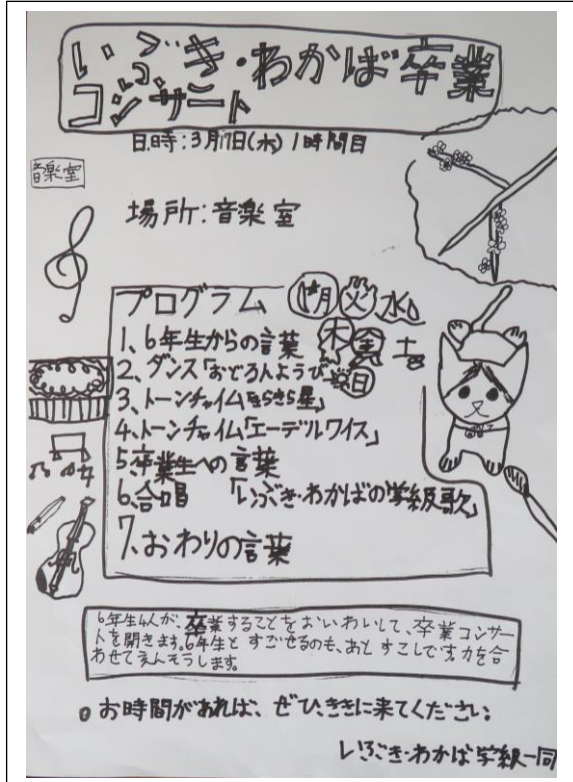 いぶき・わかば卒業
コンサート
日時:3月17日(水) 1時間目
音楽室
場所:音楽室
プログラム
月 火 水
木 金 土
日
1、6年生からの言葉
2、ダンス「おどろんようび」
3、トーンチャイム「きらきら星」
4、トーンチャイム「エーデルワイス」
5、卒業生への言葉
6、合唱 「いぶき・わかばの学級歌」
7、おわりの言葉
6年生4人が、卒業することをおいわいして、卒業コンサー
トを開きます。6年生と すごせるのも、あと すこしです。力を合
わせてえんそうします。
お時間があれば、ぜひ、ききに来てください。
いぶき・わかば学級一同